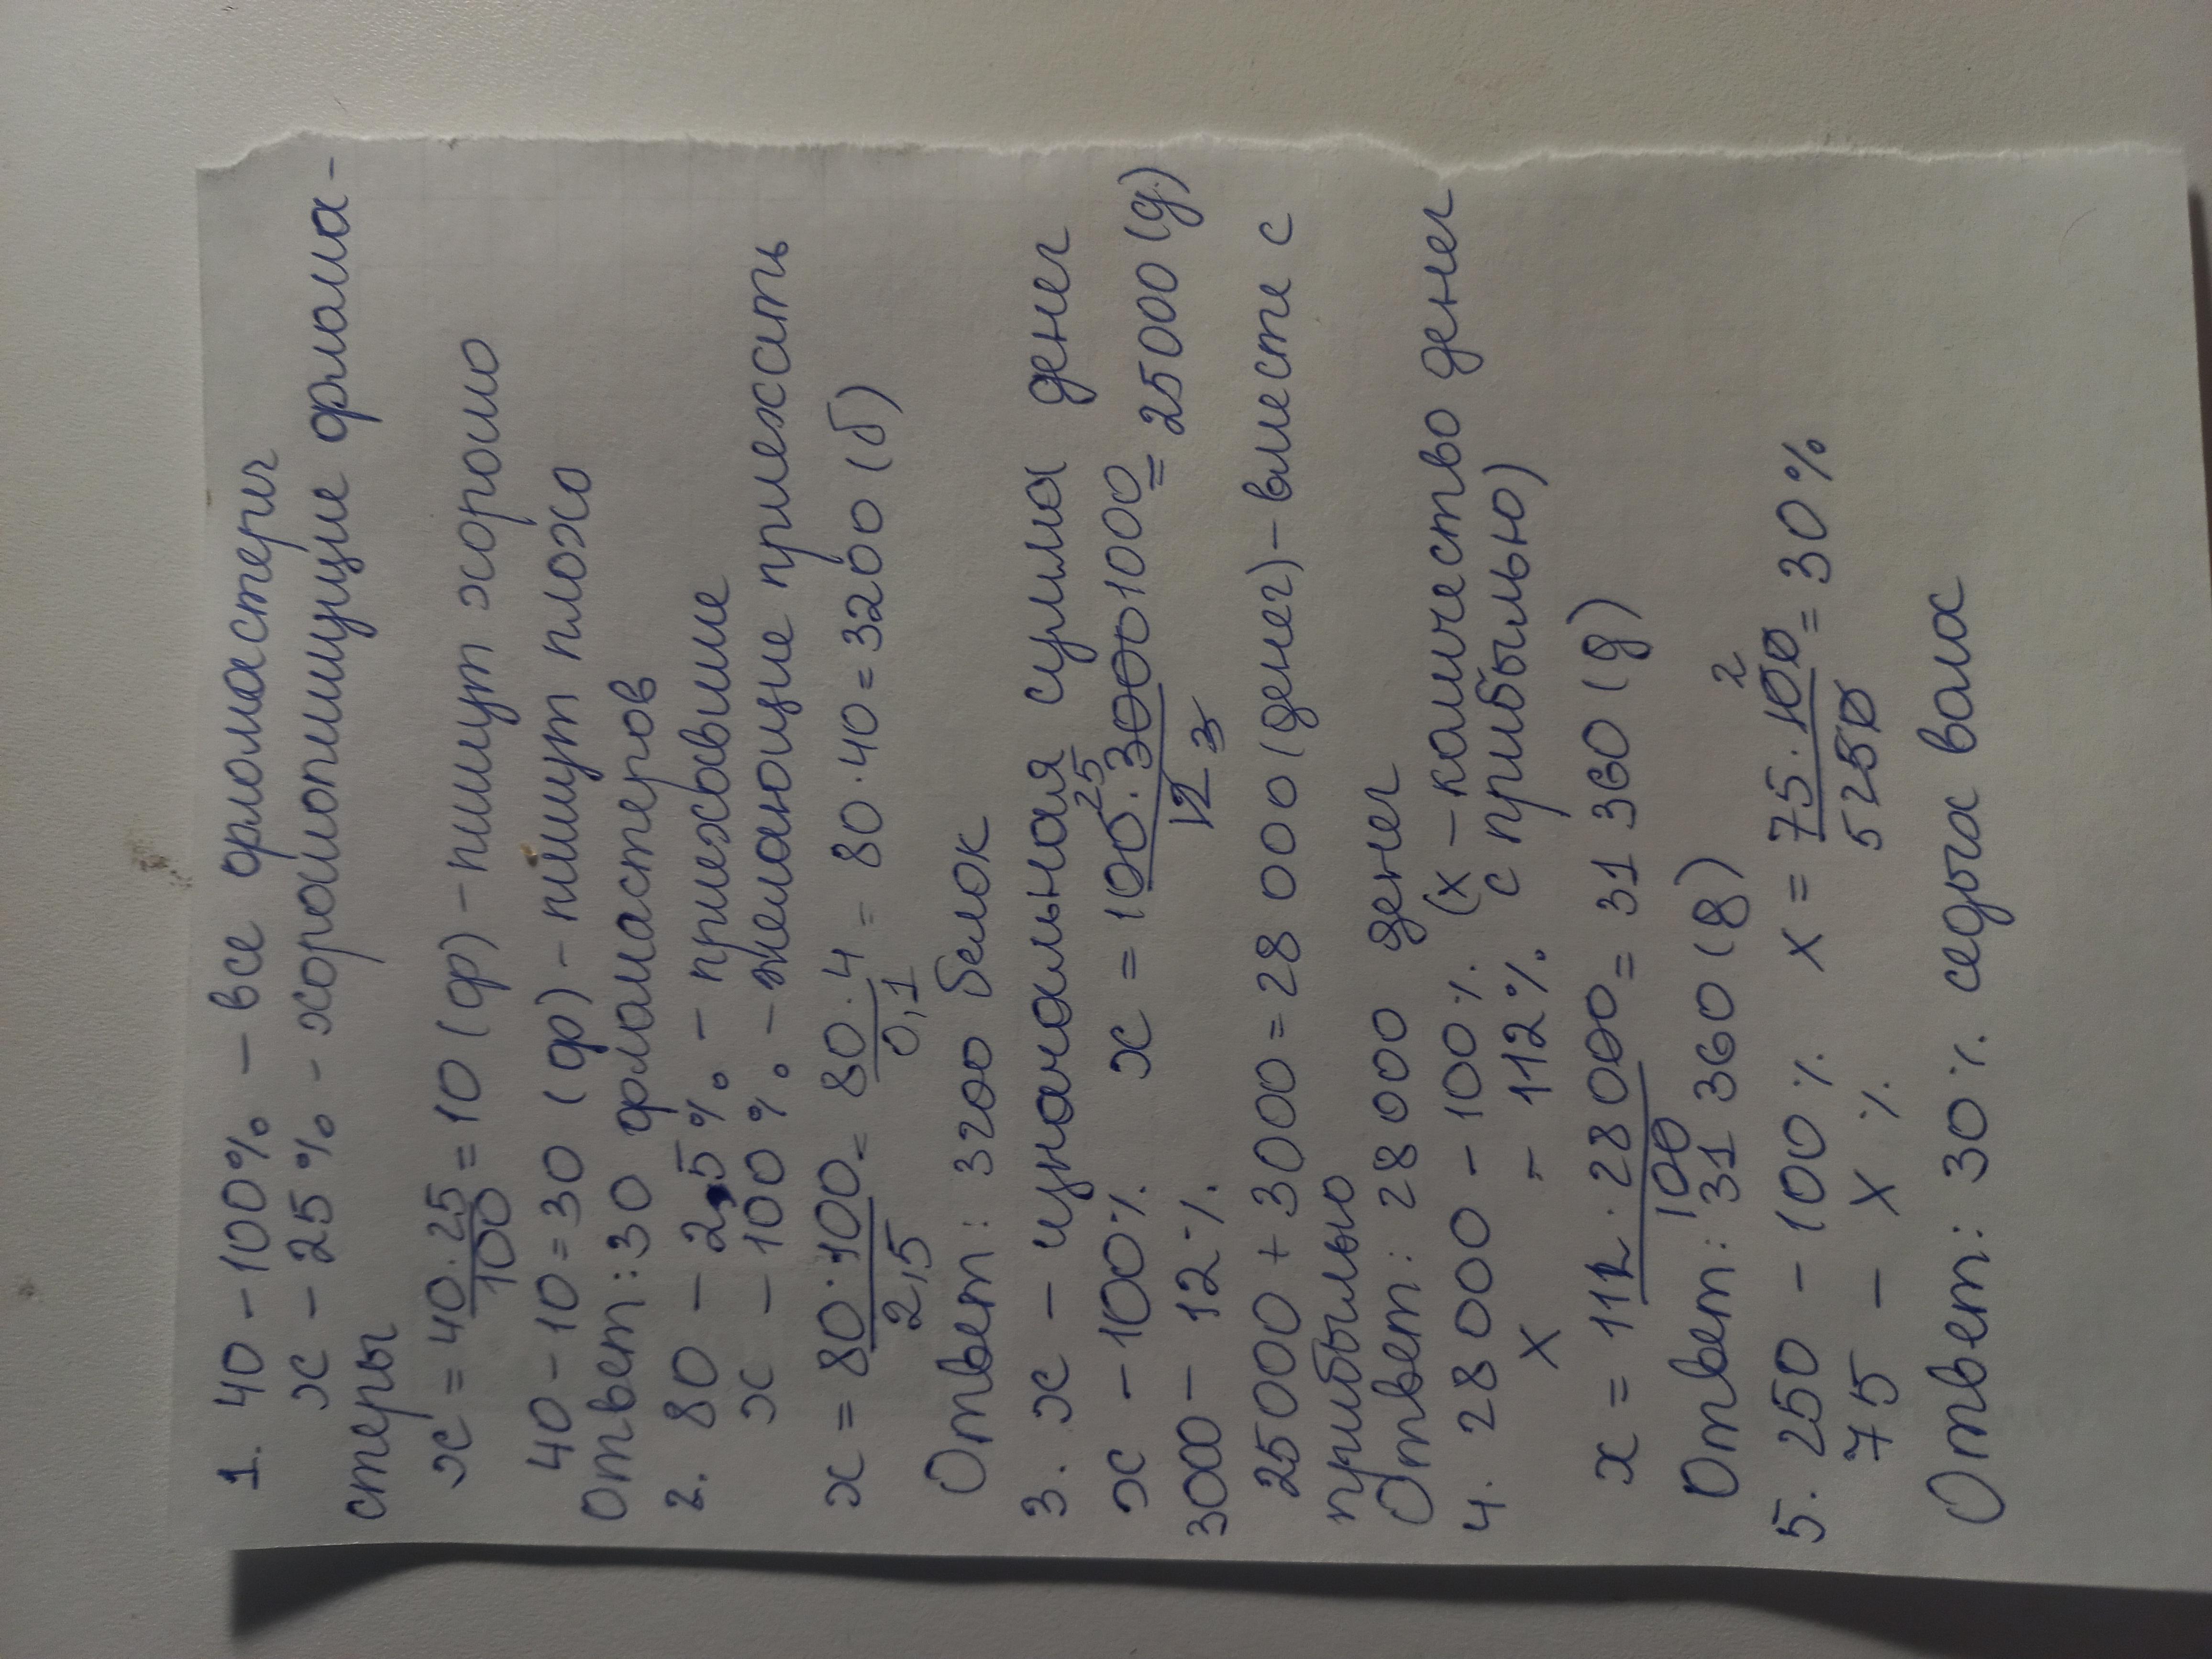 1. 40 - 100% - все фломастеры
x - 25% - хорошопишущие флома-
стеры
x = 40 · 25 / 100 = 10 (ф) - пишут хорошо
40 - 10 = 30 (ф) - пишут плохо
Ответ: 30 фломастеров
2. 80 - 2,5% - приехавшие
x - 100% - желающие приехать
x = 80 · 100 / 2,5 = 80 · 4 / 0,1 = 80 · 40 = 3200 (б)
Ответ: 3200 белок
3. x - изначальная сумма денег
x - 100% x = 100 · 3000 / 12 = 25000 (д)
25 1000
3
3000 - 12%
25000 + 3000 = 28 000 (денег) - вместе с
прибылью
Ответ: 28 000 денег
4. 28 000 - 100% (x - количество денег
x - 112% с прибылью)
x = 112 · 28 000 / 100 = 31 360 (д)
Ответ: 31 360 (д)
5. 250 - 100% x = 75 · 100 / 250 = 30%
2
5
75 - x%
Ответ: 30% седых волос